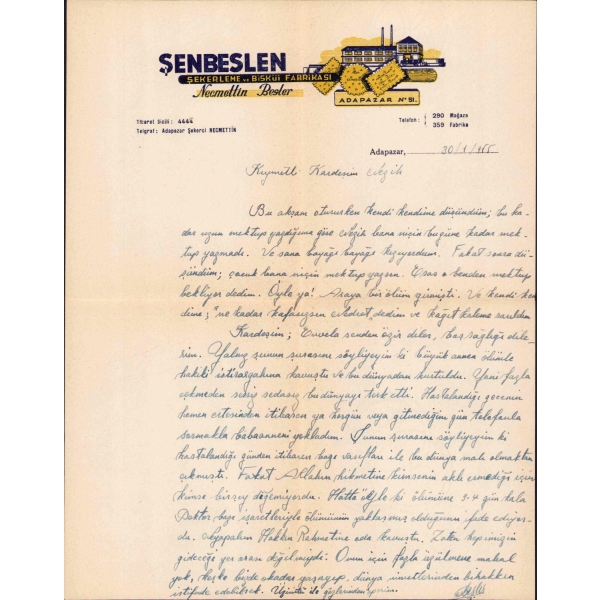 ŞENBESLEN
ŞEKERLEME ve BİSKÜİ FABRİKASI
Necmettin Besler
ADAPAZAR No 91.
Ticaret Sicili : 4444
Telgraf : Adapazar Şekerci NECMETTİN
Telefon : 290 Mağaza
359 Fabrika
Adapazar, 30/1/955
Kıymetli Kardeşim Nezih
Bu akşam otururken kendi kendime düşündüm; bu ka-
dar uzun mektup yazdığıma göre Nezih bana niçin bugüne kadar mek-
tup yazmadı. Ve sana bayağı bayağı kızıyordum. Fakat sonra dü-
şündüm; çocuk bana niçin mektup yazsın. Esas o benden mektup
bekliyor dedim. Öyle ya! Araya bir ölüm girmişti. Ve kendi ken
dime; "ne kadar kafasızsın dedim ve kâğıt kaleme sarıldım
Kardeşim; Evvela senden özür diler, baş sağlığı dile-
rim. Yalnız şunun şurasını söyliyeyim ki büyük anen ölümle
hakiki istirahatına kavuştu ve bu dünyadan kurtuldu. Yani fazla
çekmeden sessiz sedasız bu dünyayı terk etti. Hastalandığı gecenin
hemen ertesinden itibaren ya hergün veya gitmediğim gün telefonla
sormakla babaanneni yokladım. Şunun şurasını söyliyeyim ki
hastalandığı günden itibaren bazı vasıfları ile bu dünya malı olmaktan
çıkmıştı. Fakat Allahın hikmetine kimsenin aklı ermediği için
kimse birşey değemiyordu. Hatta öyle ki ölümüne 3-4 gün kala
Doktor beye işaretleriyle ölümünün yaklaşmış olduğunu ifade ediyor-
du. Hakkın Rahmetine oda kavuştu. Zaten hepimizin
gideceği yer orası değilmiydi. Onun için fazla üzülmene mahal
yok, keşke bizde okadar yaşayıp, dünya nimetlerinden bihakkın
istifade edebilsek. Üzüntü ile gözlerinden öperim.